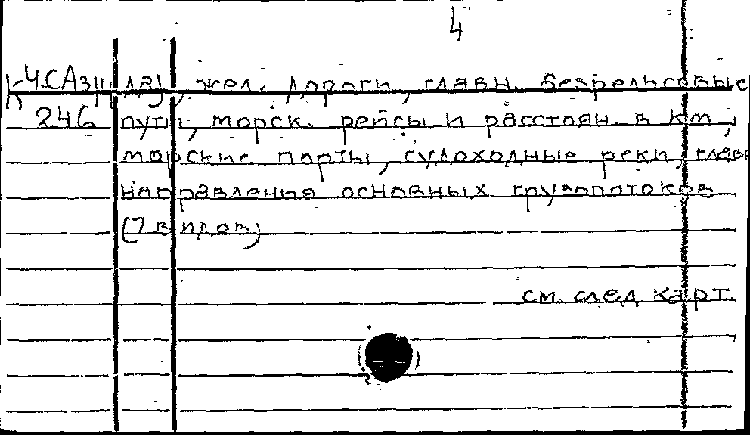 4
К 4.САЗЦ лз), жел. дороги, главн. безрельсовые
246 пути, морск. рейсы и расстоян. в км,
морские порты, судоходные реки, главн
направления основных грузопотоков
(7 в
см. след карт.